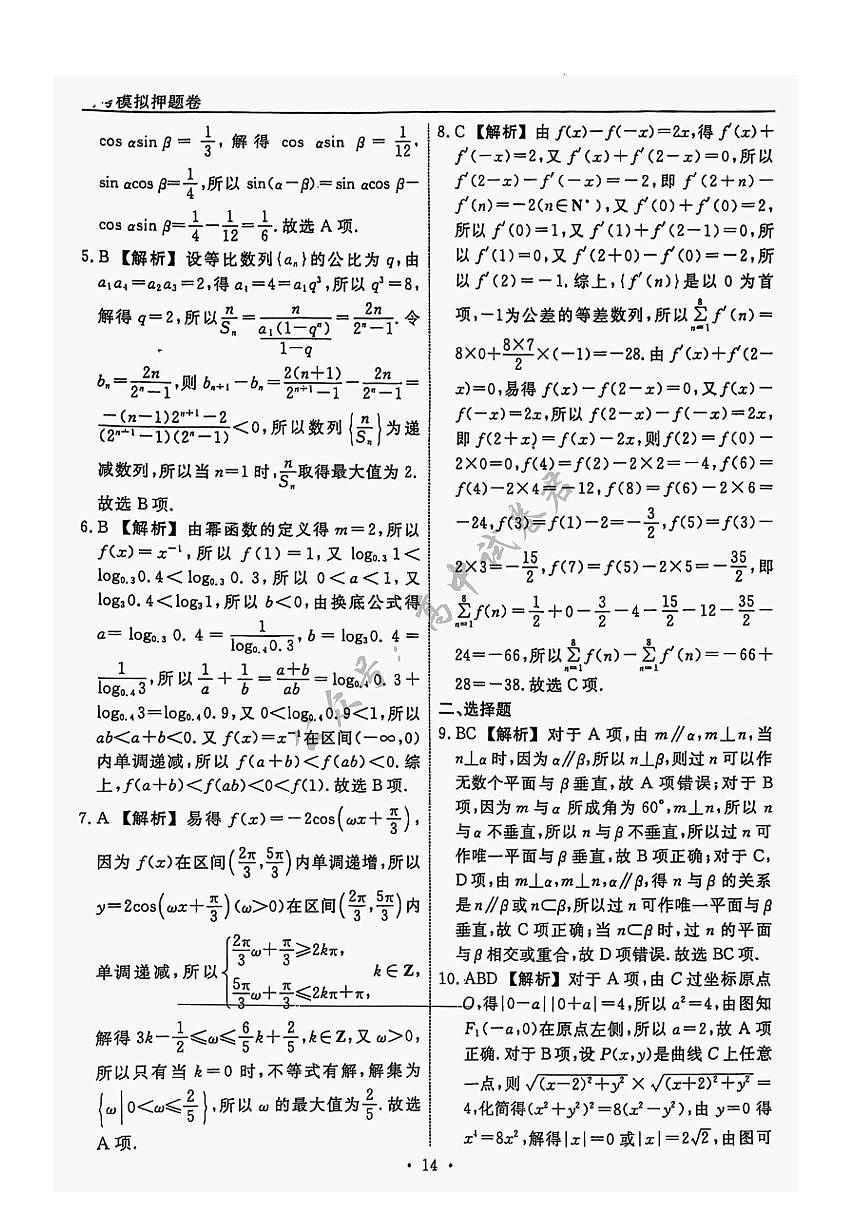 模拟押题卷
cos αsin β = 1/3, 解得 cos αsin β = 1/12,
sin αcos β=1/4,所以 sin(α-β)=sin αcos β-
cos αsin β=1/4-1/12=1/6.故选 A 项.
5.B 【解析】设等比数列{aₙ}的公比为 q,由
a₁a₄=a₂a₃=2,得 a₄=4=a₁q³,所以 q³=8,
解得 q=2,所以 n/Sₙ=n/(a₁(1-qⁿ)/(1-q))=2n/(2ⁿ-1).令
bₙ=2n/(2ⁿ-1),则 bₙ₊₁-bₙ=2(n+1)/(2ⁿ⁺¹-1)-2n/(2ⁿ-1)=
(-(n-1)2ⁿ⁺¹-2)/((2ⁿ⁺¹-1)(2ⁿ-1))<0,所以数列{n/Sₙ}为递
减数列,所以当 n=1 时,n/Sₙ取得最大值为 2.
故选 B 项.
6.B 【解析】由幂函数的定义得 m=2,所以
f(x)=x⁻¹,所以 f(1)=1,又 log₀.₃1<
log₀.₃0.4<log₀.₃0.3,所以 0<a<1,又
log₃0.4<log₃1,所以 b<0,由换底公式得
a=log₀.₃0.4=1/log₀.₄0.3,b=log₃0.4=
1/log₀.₄3,所以 1/a+1/b=(a+b)/ab=log₀.₄0.3+
log₀.₄3=log₀.₄0.9,又 0<log₀.₄0.9<1,所以
ab<a+b<0.又 f(x)=x⁻¹在区间(-∞,0)
内单调递减,所以 f(a+b)<f(ab)<0.综
上,f(a+b)<f(ab)<0<f(1).故选 B 项.
7.A 【解析】易得 f(x)=-2cos(ωx+π/3),
因为 f(x)在区间(2π/3,5π/3)内单调递增,所以
y=2cos(ωx+π/3)(ω>0)在区间(2π/3,5π/3)内
单调递减,所以{2π/3ω+π/3≥2kπ, 5π/3ω+π/3≤2kπ+π, k∈Z,
解得 3k-1/2≤ω≤6/5k+2/5,k∈Z,又 ω>0,
所以只有当 k=0 时,不等式有解,解集为
{ω|0<ω≤2/5},所以 ω 的最大值为2/5.故选
A 项.
8.C 【解析】由 f(x)-f(-x)=2x,得 f′(x)+
f′(-x)=2,又 f′(x)+f′(2-x)=0,所以
f′(2-x)-f′(-x)=-2,即 f′(2+n)-
f′(n)=-2(n∈N*),又 f′(0)+f′(0)=2,
所以 f′(0)=1,又 f′(1)+f′(2-1)=0,所
以 f′(1)=0,又 f′(2+0)-f′(0)=-2,所
以 f′(2)=-1.综上,{f′(n)}是以 0 为首
项,-1为公差的等差数列,所以 ∑(n=1→8) f′(n)=
8×0+(8×7)/2×(-1)=-28.由 f′(x)+f′(2-
x)=0,易得 f(x)-f(2-x)=0,又f(x)-
f(-x)=2x,所以 f(2-x)-f(-x)=2x,
即 f(2+x)=f(x)-2x,则 f(2)=f(0)-
2×0=0,f(4)=f(2)-2×2=-4,f(6)=
f(4)-2×4=-12,f(8)=f(6)-2×6=
-24,f(3)=f(1)-2=-3/2,f(5)=f(3)-
2×3=-15/2,f(7)=f(5)-2×5=-35/2,即
∑(n=1→8) f(n)=1/2+0-3/2-4-15/2-12-35/2-
24=-66,所以 ∑(n=1→8) f(n)-∑(n=1→8) f′(n)=-66+
28=-38.故选 C 项.
二、选择题
9.BC 【解析】对于 A 项,由 m∥α,m⊥n,当
n⊥α 时,因为 α∥β,所以 n⊥β,则过 n 可以作
无数个平面与 β 垂直,故 A 项错误;对于 B
项,因为 m 与 α 所成角为 60°,m⊥n,所以 n
与 α 不垂直,所以 n 与 β 不垂直,所以过 n 可
作唯一平面与 β 垂直,故 B 项正确;对于 C,
D 项,由 m⊥α,m⊥n,α∥β,得 n 与 β 的关系
是 n∥β 或 n⊂β,所以过 n 可作唯一平面与 β
垂直,故 C 项正确;当 n⊂β 时,过 n 的平面
与 β 相交或重合,故 D 项错误.故选 BC 项.
10.ABD 【解析】对于 A 项,由 C 过坐标原点
O,得|0-a||0+a|=4,所以 a²=4,由图知
F₁(-a,0)在原点左侧,所以 a=2,故 A 项
正确.对于 B 项,设 P(x,y)是曲线 C 上任意
一点,则 √((x-2)²+y²) × √((x+2)²+y²) =
4,化简得(x²+y²)²=8(x²-y²),由 y=0 得
x⁴=8x²,解得|x|=0 或|x|=2√2,由图可
· 14 ·
公众号:高中试卷君